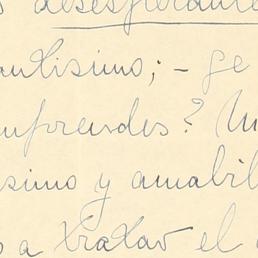 desesperante
antísimo; – ge
mprendes?
ísimo y amabil
a tratar el